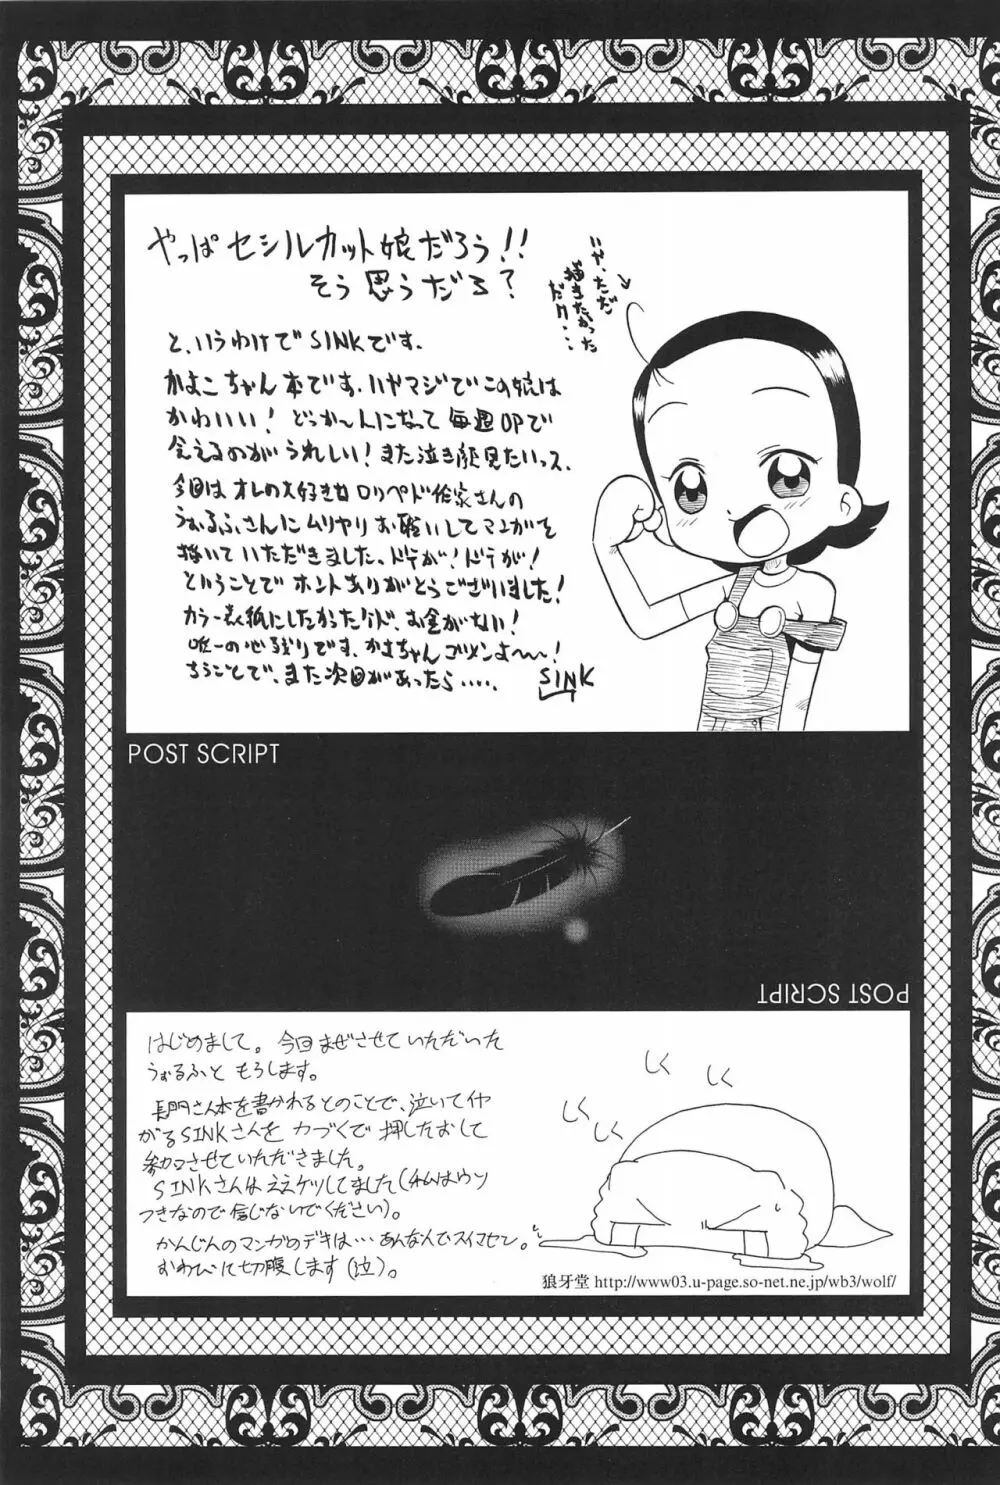 やっぱセシルカット娘だろう!!
そう思うだろ?
いや、ただ
描きたかった
だけ・・
と、いうわけでSINKです。
かよこちゃん本です、いやマジでこの娘は
かわいい! どっか〜んになって毎週OPで
会えるのがうれしい!また泣き顔見たいっス、
今回はオレの大好きな ロリペド作家さんの
うぉるふさんにムリヤリお願いしてマンガを
描いていただきました、ドテが!ドテが!
ということでホントありがとうございました!
カラー表紙にしたかったケド、お金がない!
唯一の心残りです、かよちゃんゴメンよ〜〜!
ちうことで、また次回があったら・・・・・
SINK
POST SCRIPT
POST SCRIPT
はじめまして。今回まぜさせていただいた
うぉるふと もうします。
長門さん本を書かれるとのことで、泣いてイヤ
がるSINKさんを 力づくで 押したおして
参加させていただきました。
SINKさんはええケツしてました(私はウソ
つきなので信じないでください)。
かんじんのマンガのデキは…あんなんでスイマセン。
おわびに切腹します(泣)。
しく
しく
しく
しく
狼牙堂 http://www03.u-page.so-net.ne.jp/wb3/wolf/